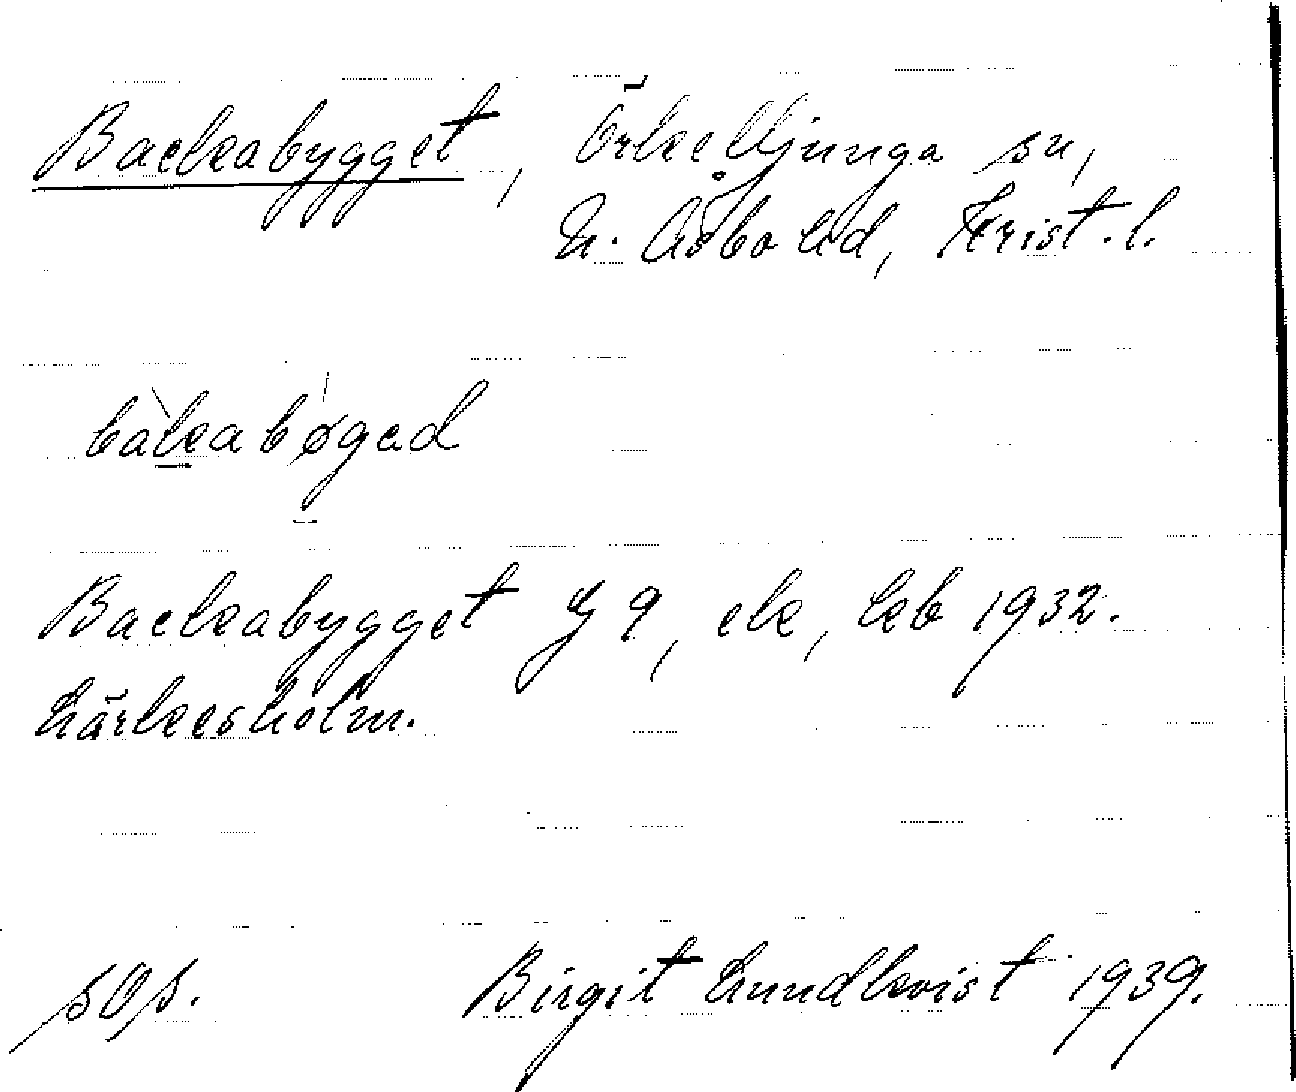 Backabygget, Örkelljunga sn,
N. Åsbo hd, Krist. l.
bàkabǿgəd
Backabygget J 9, ek, kb 1932.
Härkesholm.
sOs. Birgit Lundkvist 1939.